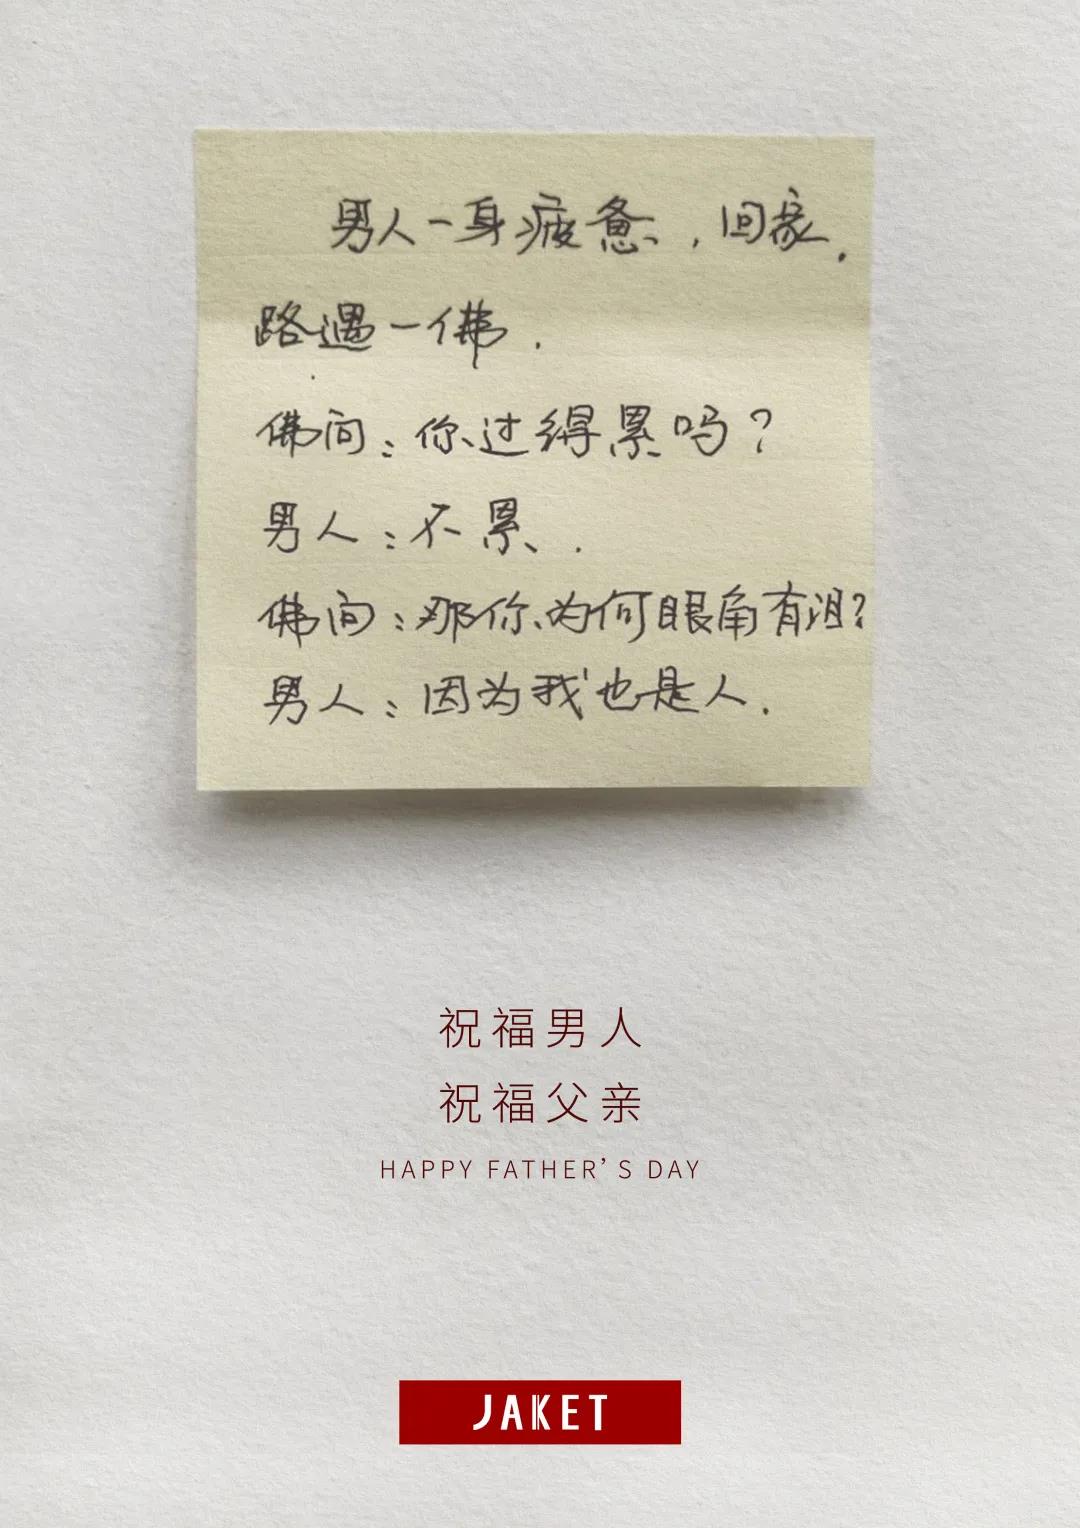 男人一身疲惫，回家．
路遇一佛．
佛问：你过得累吗？
男人：不累．
佛问：那你为何眼角有泪？
男人：因为我也是人．
祝福男人
祝福父亲
HAPPY FATHER'S DAY
JAKET